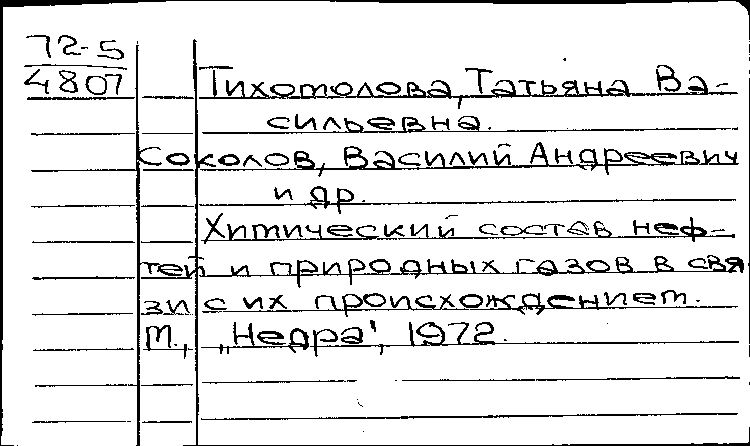 72-5
4807
Тихомолова, Татьяна Ва-
сильевна.
Соколов, Василий Андреевич
и др.
Химический состав неф-
тей и природных газов в свя
зи с их происхождением.
М., „Недра", 1972.